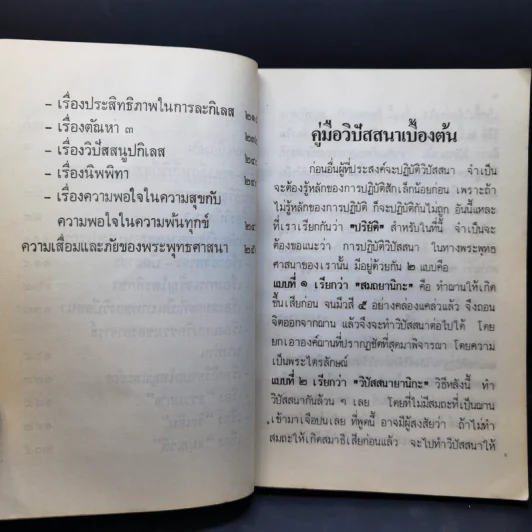 - เรื่องประสิทธิภาพในการละกิเลส
- เรื่องตัณหา ๓
- เรื่องวิปัสสนูปกิเลส
- เรื่องนิพพิทา
- เรื่องความพอใจในความสุขกับ
ความพอใจในความพ้นทุกข์
ความเสื่อมและภัยของพระพุทธศาสนา
คู่มือวิปัสสนาเบื้องต้น
ก่อนอื่นผู้ที่ประสงค์จะปฏิบัติวิปัสสนา จำเป็น
จะต้องรู้หลักของการปฏิบัติสักเล็กน้อยก่อน เพราะถ้า
ไม่รู้หลักของการปฏิบัติ ก็จะปฏิบัติกันไม่ถูก อันนี้แหละ
ที่เราเรียกกันว่า "ปริยัติ" สำหรับในที่นี้ จำเป็นจะ
ต้องขอแนะว่า การปฏิบัติวิปัสสนา ในทางพระพุทธ
ศาสนาของเรานั้น มีอยู่ด้วยกัน ๒ แบบคือ
แบบที่ ๑ เรียกว่า "สมถยานิกะ" คือ ทำฌานให้เกิด
ขึ้นเสียก่อน จนมีวสี ๕ อย่างคล่องแคล่วแล้ว จึงถอน
จิตออกจากฌาน แล้วจึงจะทำวิปัสสนาต่อไปได้ โดย
ยกเอาองค์ฌานที่ปรากฏชัดที่สุดมาพิจารณา โดยความ
เป็นพระไตรลักษณ์
แบบที่ ๒ เรียกว่า "วิปัสสนายานิกะ" วิธีหลังนี้ ทำ
วิปัสสนากันล้วน ๆ เลย โดยที่ไม่มีสมถะที่เป็นฌาน
เข้ามาเจือปนเลย ที่พูดนี้ อาจมีผู้สงสัยว่า ถ้าไม่ทำ
สมถะให้เกิดสมาธิเสียก่อนแล้ว จะไปทำวิปัสสนาให้